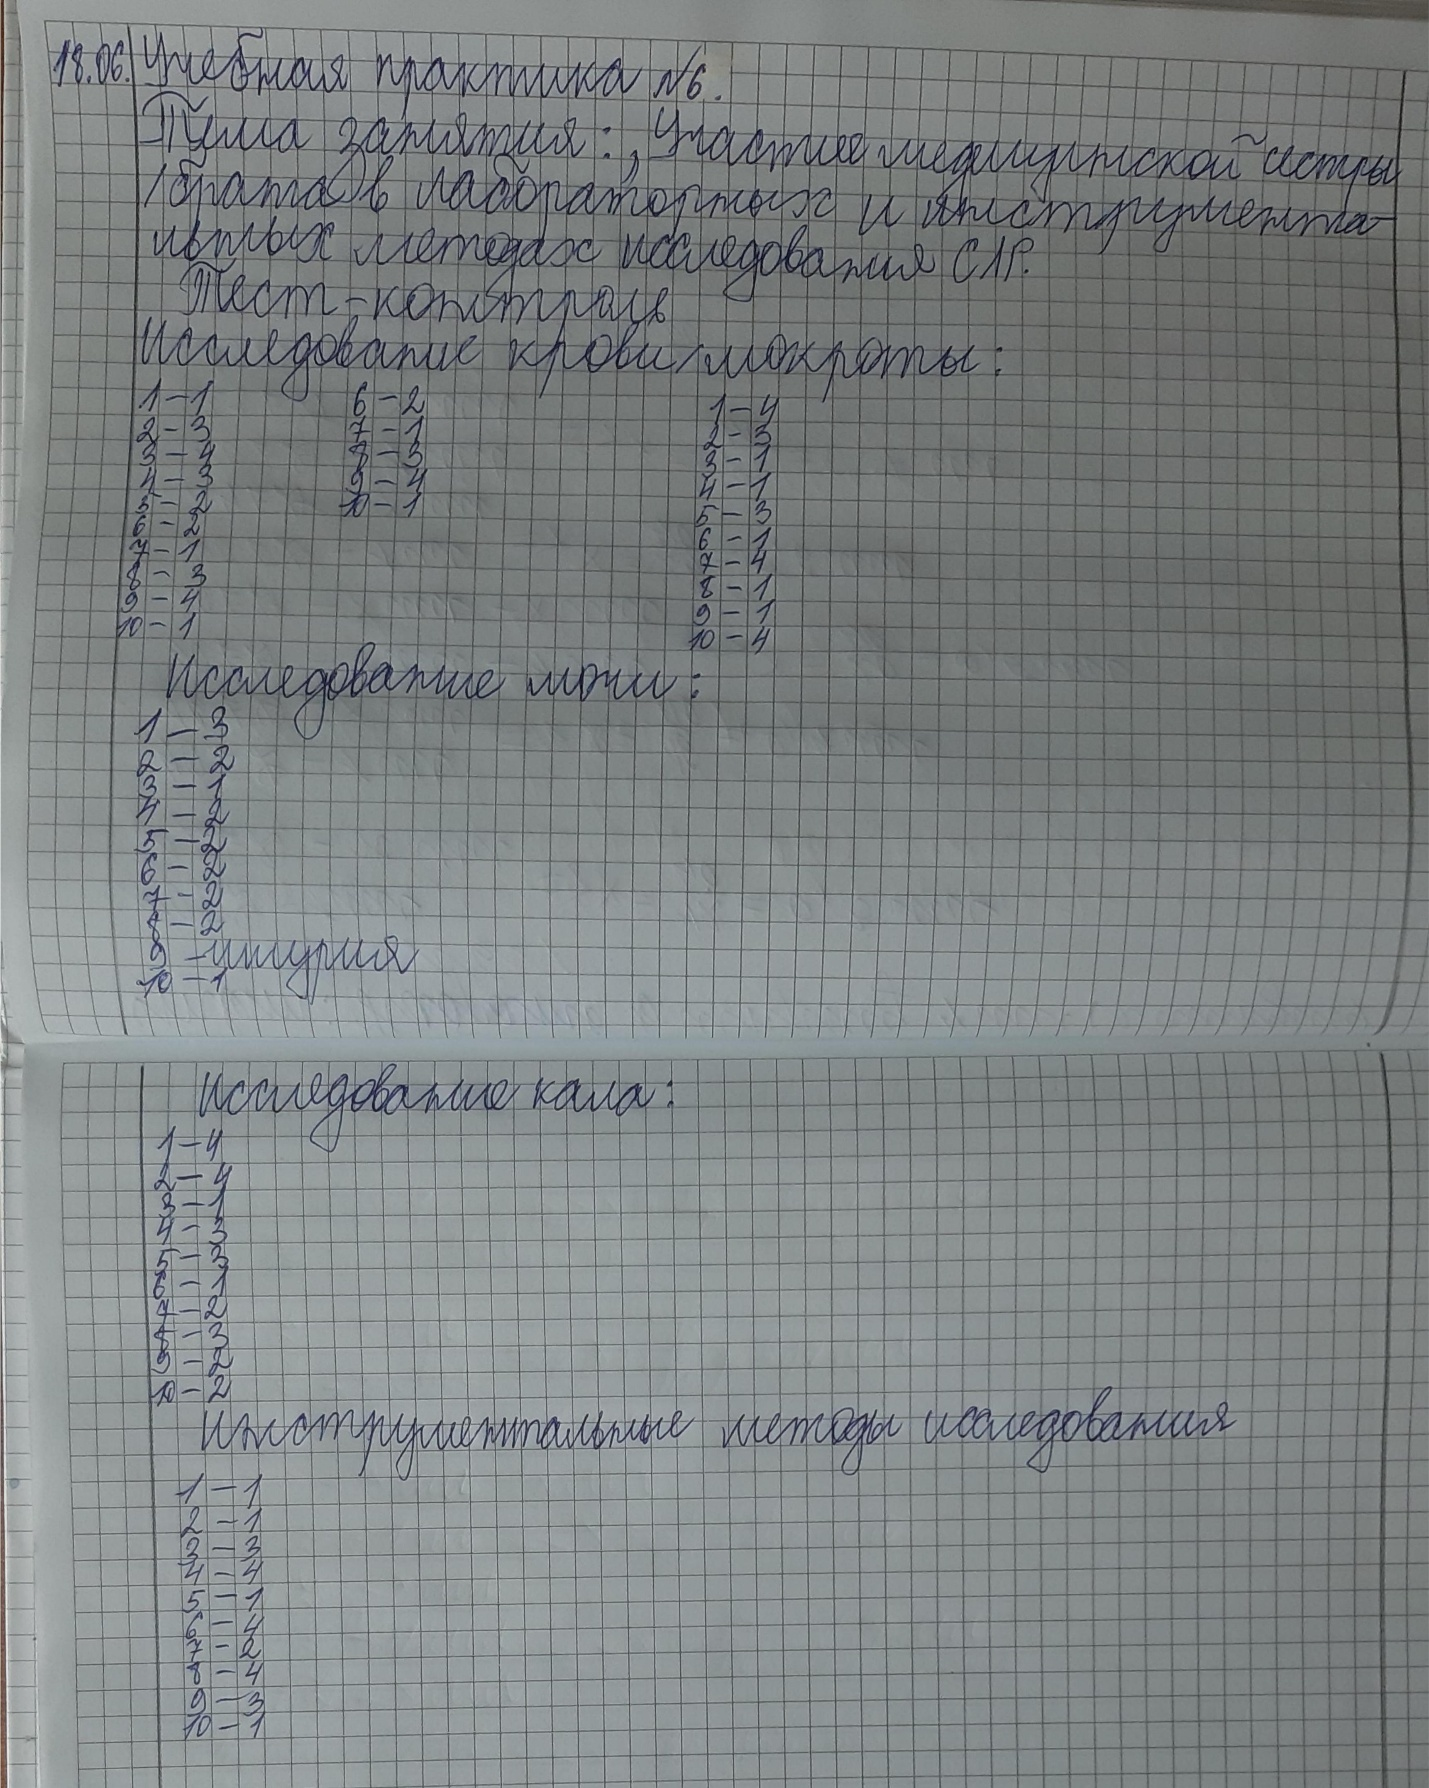 18.06. Учебная практика №6.
Тема занятия: „Участие медицинской сестры
/брата в лабораторных и инструмента-
льных методах исследования СЛР.
Тест-контроль
Исследование крови/мокроты:
1-1
2-3
3-4
4-3
5-2
6-2
7-1
8-3
9-4
10-1
6-2
7-1
8-3
9-4
10-1
1-4
2-3
3-1
4-1
5-3
6-1
7-4
8-1
9-1
10-4
Исследование мочи:
1-3
2-2
3-1
4-2
5-2
6-2
7-2
8-2
9-ишурия
10-1
Исследование кала:
1-4
2-4
3-1
4-3
5-3
6-1
7-2
8-3
9-2
10-2
Инструментальные методы исследования
1-1
2-1
3-3
4-4
5-1
6-4
7-2
8-4
9-3
10-1